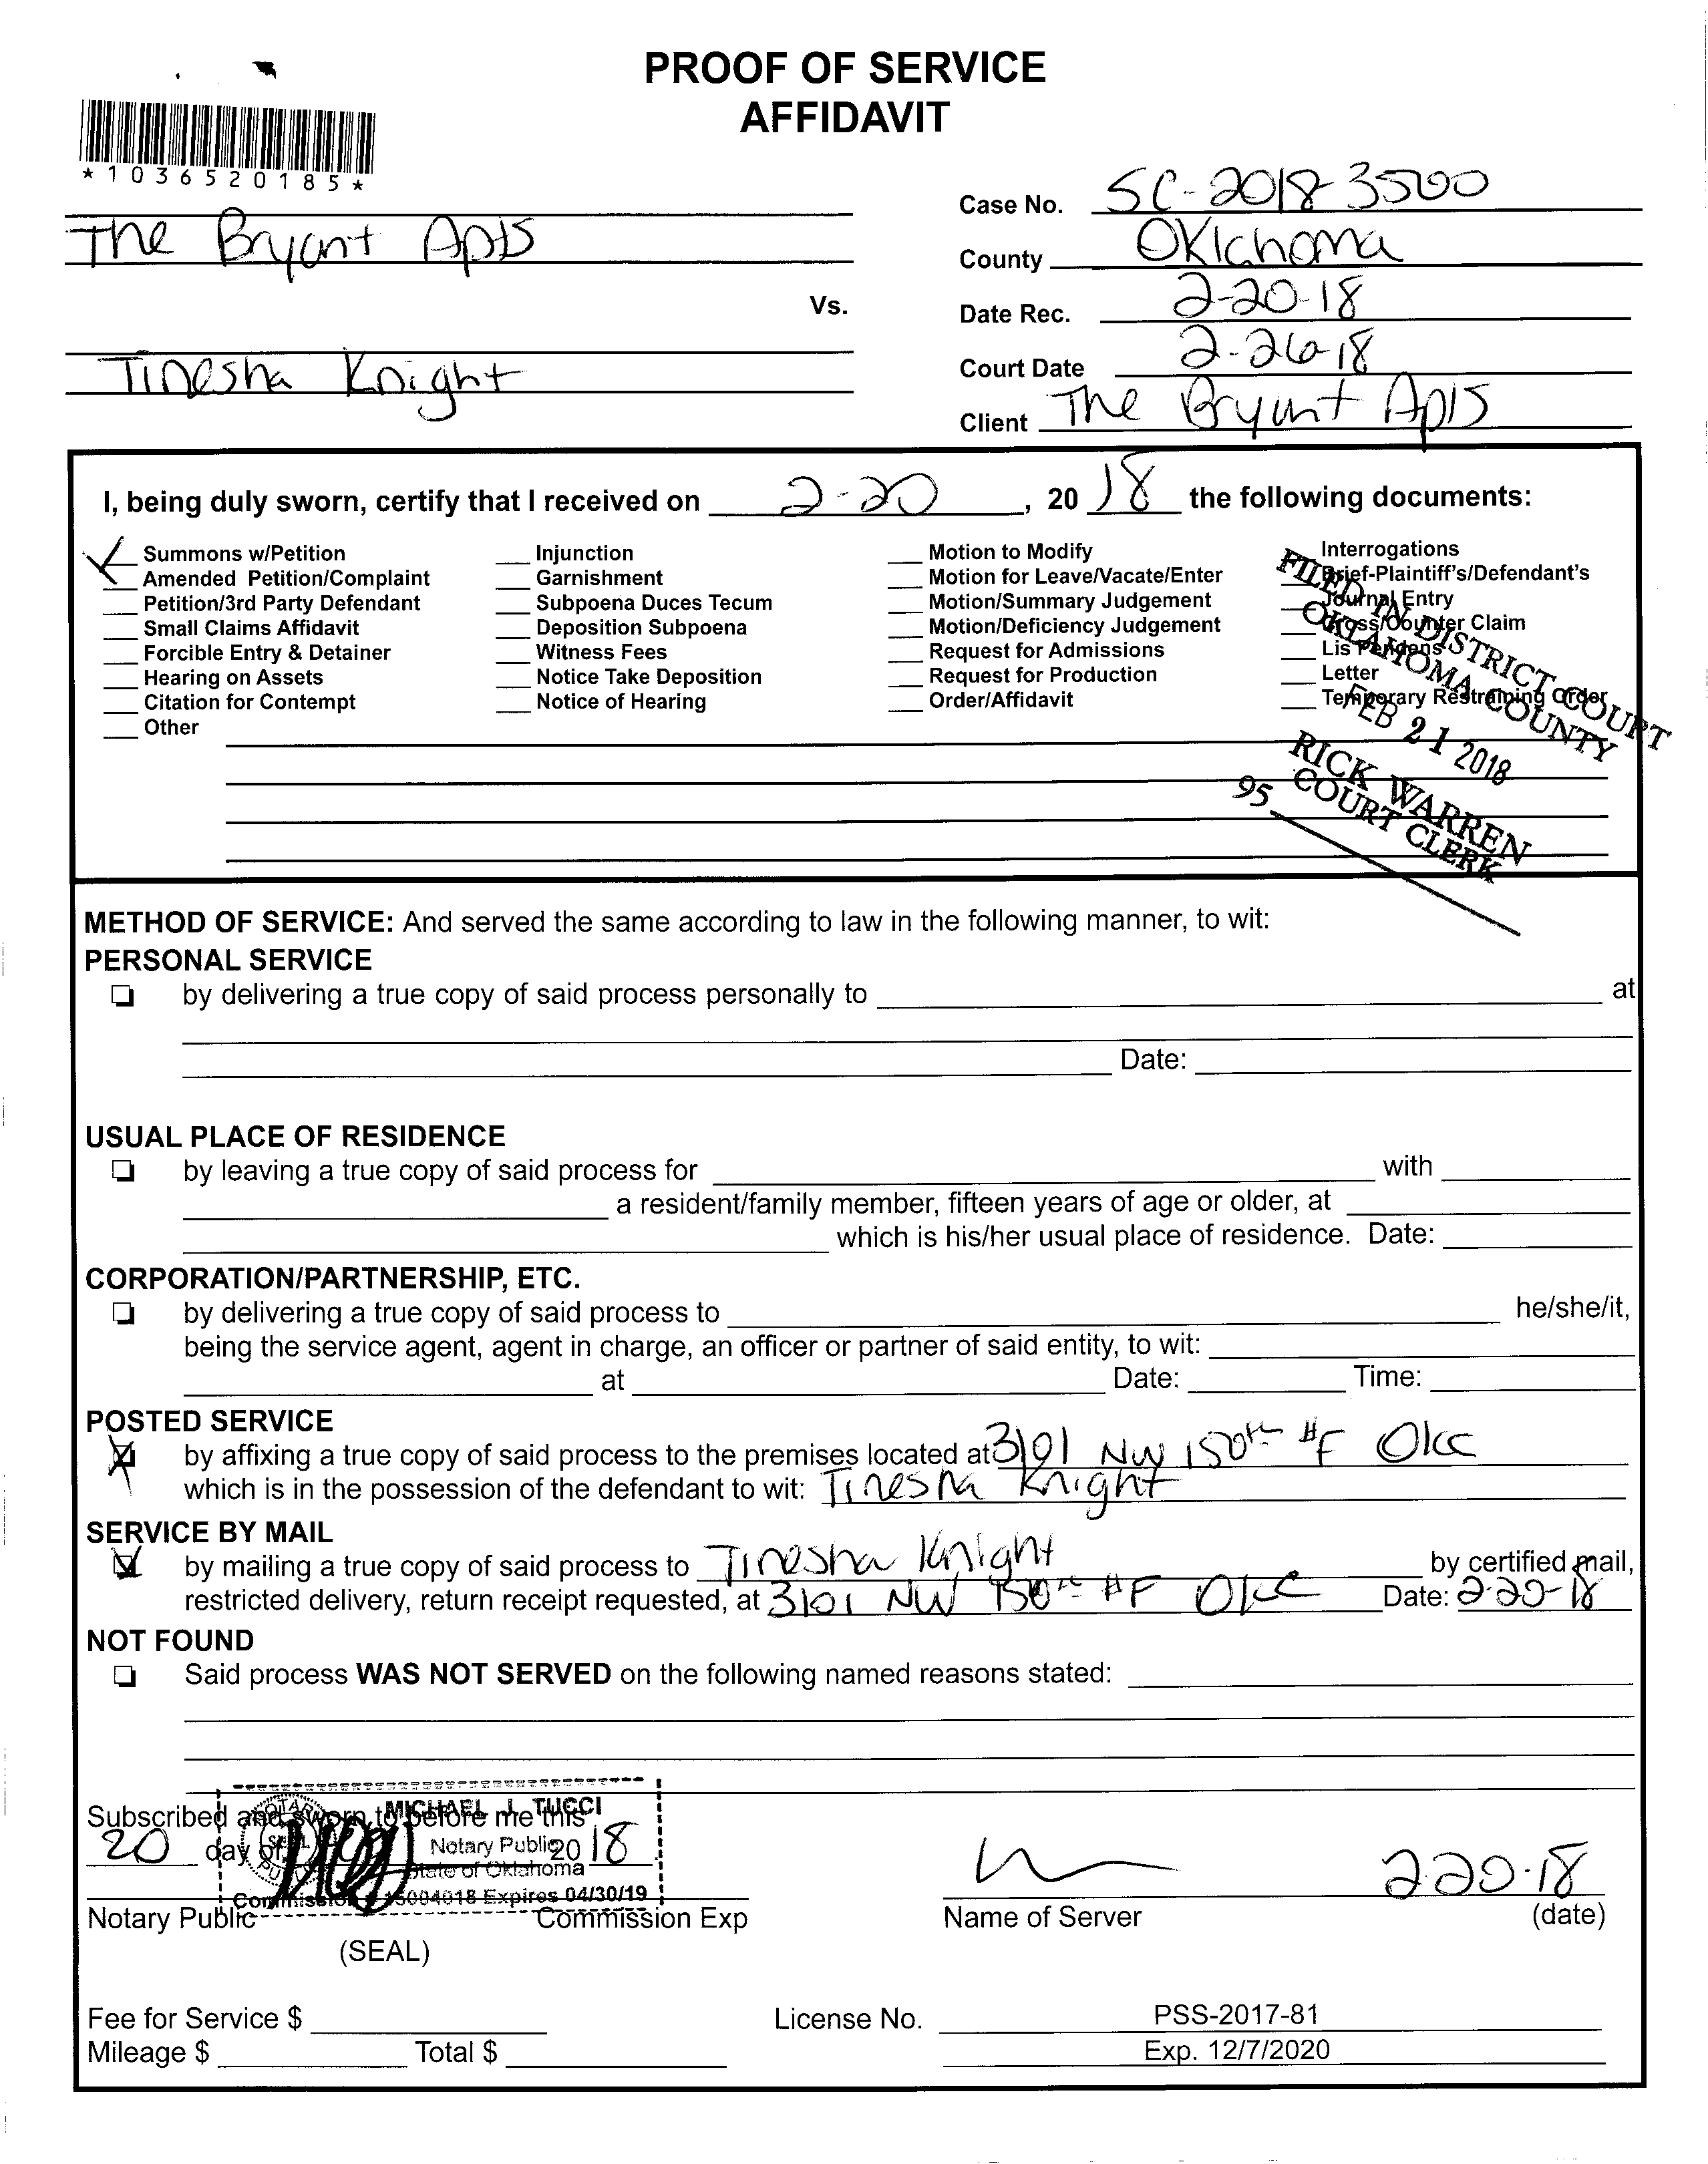 PROOF OF SERVICE
AFFIDAVIT
*1036520185*
Case No. SC-2018-3500
The Bryant Apts
County Oklahoma
Vs.
Date Rec. 2-20-18
Tinesha Knight
Court Date 2-26-18
Client The Bryant Apts
I, being duly sworn, certify that I received on 2-20, 2018 the following documents:
Summons w/Petition
Amended Petition/Complaint
Petition/3rd Party Defendant
Small Claims Affidavit
Forcible Entry & Detainer
Hearing on Assets
Citation for Contempt
Other
Injunction
Garnishment
Subpoena Duces Tecum
Deposition Subpoena
Witness Fees
Notice Take Deposition
Notice of Hearing
Motion to Modify
Motion for Leave/Vacate/Enter
Motion/Summary Judgement
Motion/Deficiency Judgement
Request for Admissions
Request for Production
Order/Affidavit
Interrogations
Brief-Plaintiff's/Defendant's
Journal Entry
Cross/Counter Claim
Lis Pendens
Letter
Temporary Restraining Order
FILED IN DISTRICT COURT
OKLAHOMA COUNTY
FEB 21 2018
RICK WARREN
COURT CLERK
95
METHOD OF SERVICE: And served the same according to law in the following manner, to wit:
PERSONAL SERVICE
by delivering a true copy of said process personally to at
Date:
USUAL PLACE OF RESIDENCE
by leaving a true copy of said process for with
a resident/family member, fifteen years of age or older, at
which is his/her usual place of residence. Date:
CORPORATION/PARTNERSHIP, ETC.
by delivering a true copy of said process to he/she/it,
being the service agent, agent in charge, an officer or partner of said entity, to wit:
at Date: Time:
POSTED SERVICE
by affixing a true copy of said process to the premises located at 3101 NW 150th #F OKC
which is in the possession of the defendant to wit: Tinesha Knight
SERVICE BY MAIL
by mailing a true copy of said process to Tinesha Knight by certified mail,
restricted delivery, return receipt requested, at 3101 NW 150th #F OKC Date: 2-20-18
NOT FOUND
Said process WAS NOT SERVED on the following named reasons stated:
Subscribed and sworn to before me this
20 day of 2018
MICHAEL J. TUCCI
Notary Public
State of Oklahoma
Commission # 15004018 Expires 04/30/19
2-20-18
Notary Public Commission Exp Name of Server (date)
(SEAL)
Fee for Service $ License No. PSS-2017-81
Mileage $ Total $ Exp. 12/7/2020